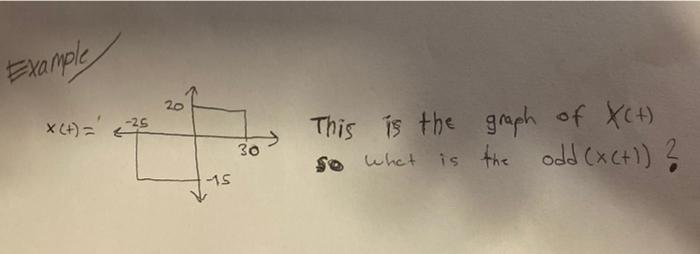 Example
20
x(t) = -25
30
-15
This is the graph of X(t)
so what is the odd(x(t)) ?